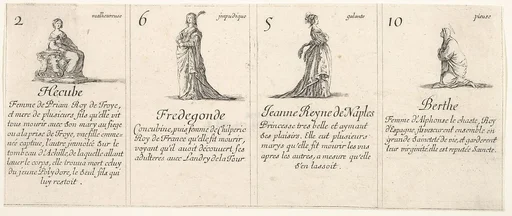 2 malheureuse
Hecube
Femme de Priam Roy de Troye,
et mere de plusieurs fils qu'elle vit
tous mourir avec son mary au siege
ou a la prise de Troye, une fille emme-
née captive, l'autre immolée sur le
tombeau d'Achille, de laquelle allant
laver le corps, elle trouva mort celuy
du jeune Polydore, le seul fils qui
luy restoit.
6 impudique
Fredegonde
Concubine, puis femme de Chilperic
Roy de France qu'elle fit mourir,
voyant qu'il avoit découvert ses
adulteres avec Landry de la Tour
5 galante
Jeanne Reyne de Naples
Princesse tres belle et aymant
ses plaisirs. Elle eut plusieurs
marys qu'elle fit mourir les uns
apres les autres, a mesure qu'elle
s'en lassoit.
10 pieuse
Berthe
Femme d'Alphonse le chaste, Roy
d'Espagne, ils vescurent ensemble en
grande Sainteté de vie, et garderent
leur virginité. elle est reputée Saincte.